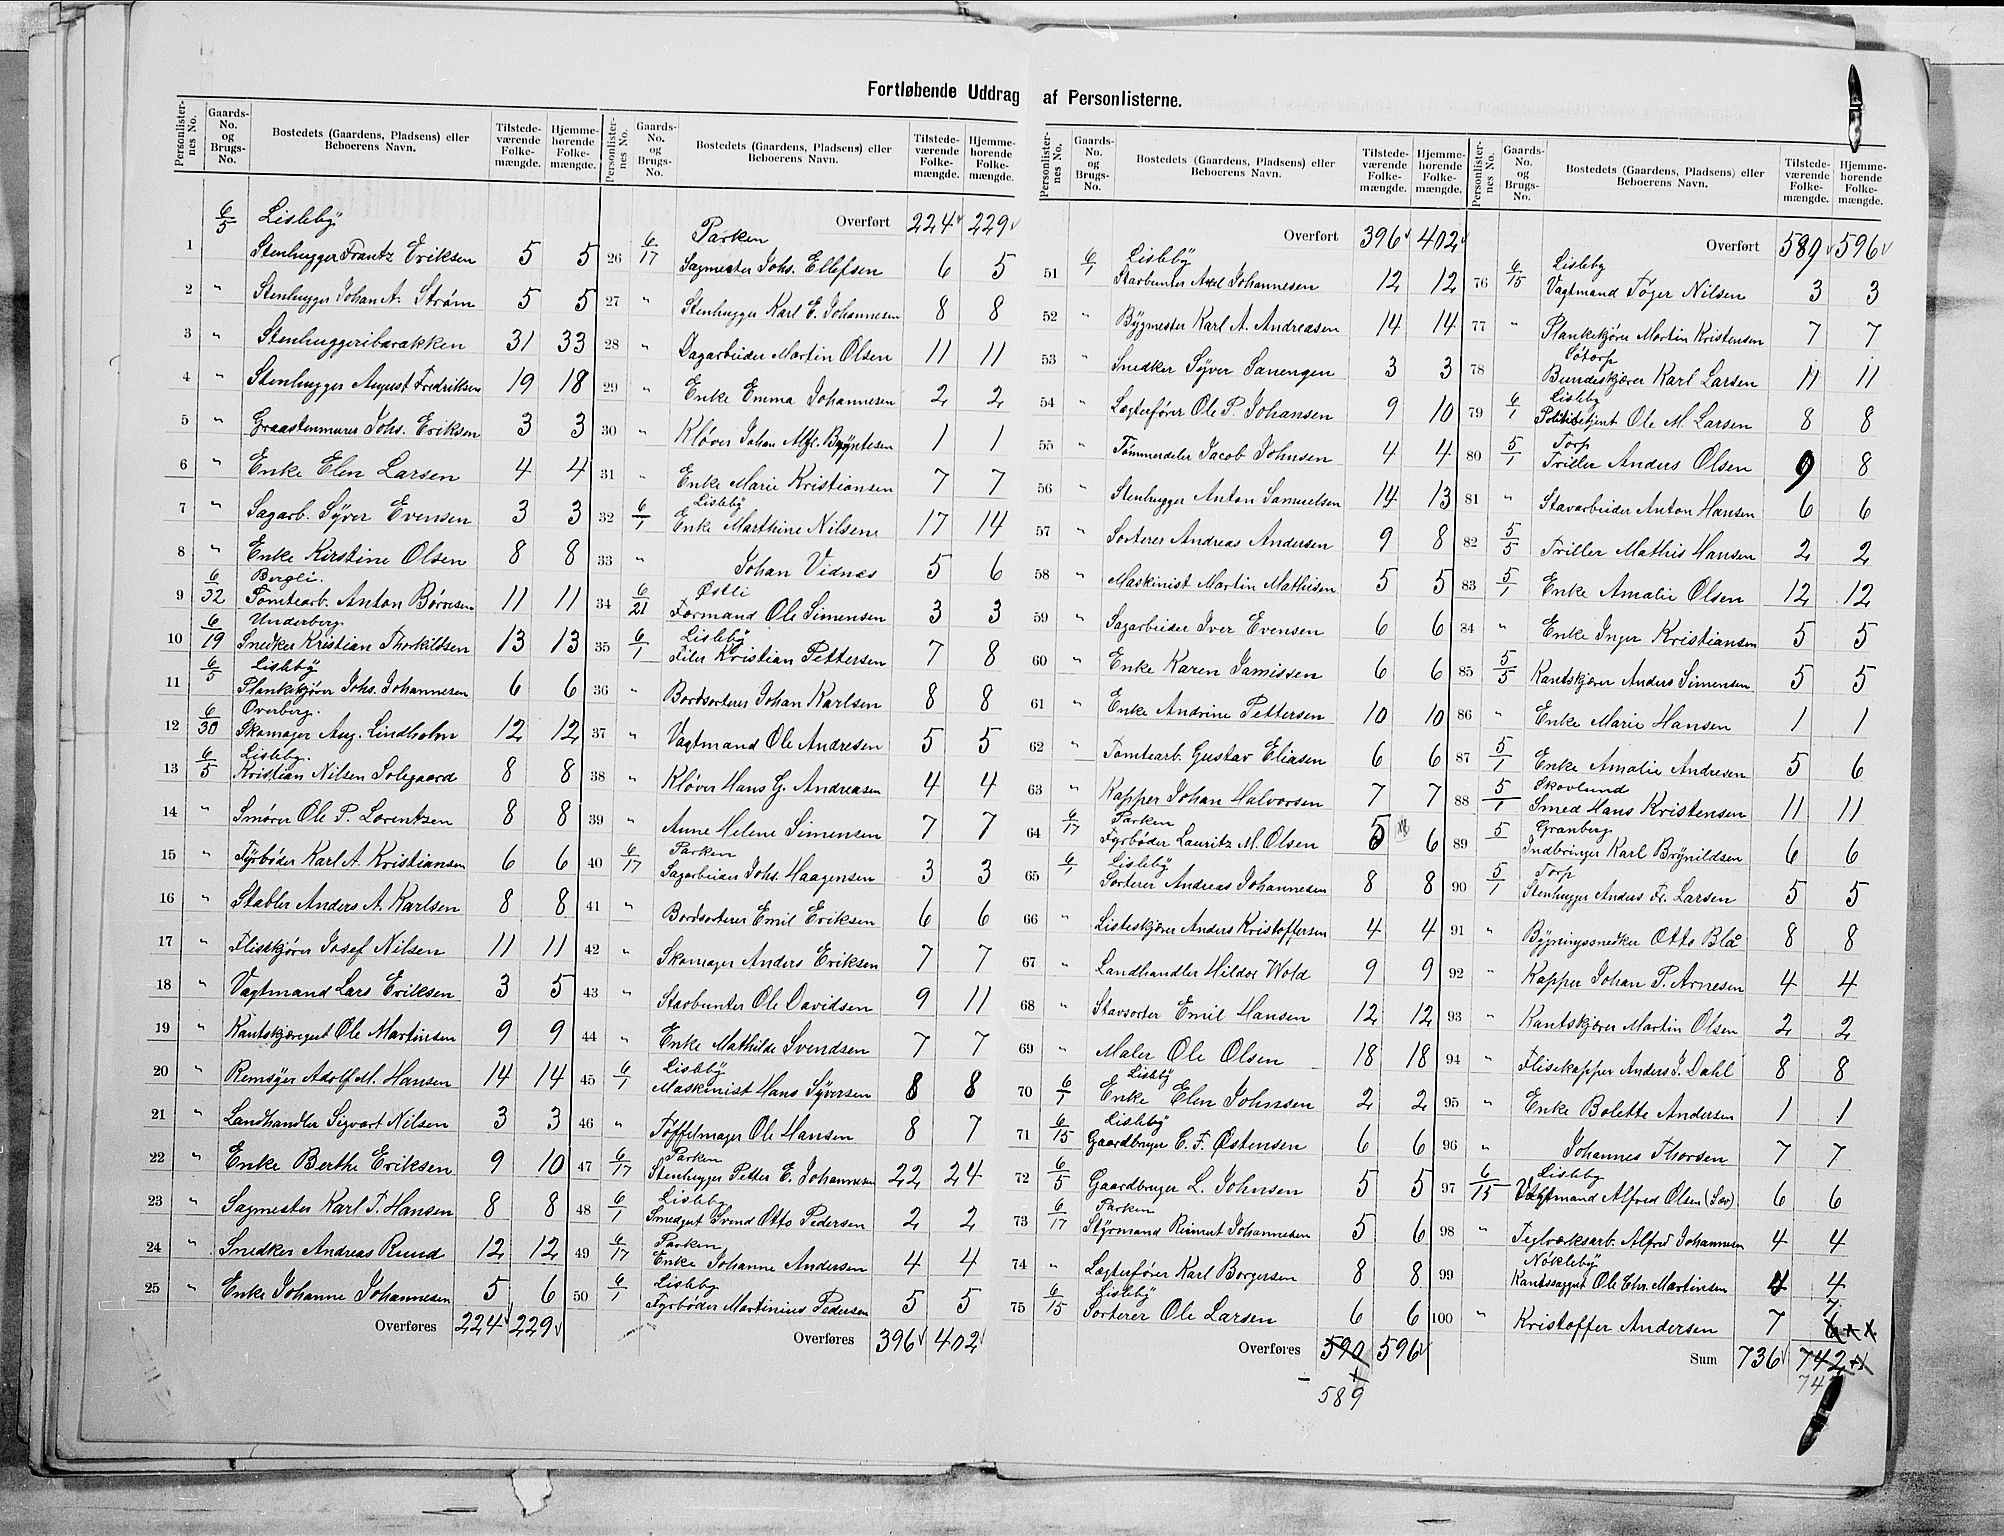 Fortløbende Uddrag af Personlisterne.
Personlister- nes No. | Gaards- No. og Brugs- No. | Bostedets (Gaardens, Pladsens) eller Beboerens Navn. | Tilstede- værende Folke- mængde. | Hjemme- hørende Folke- mængde.
6/5 Lisleby
1 Stenhugger Frantz Eriksen 5 5
2 " Stenhugger Johan A. Strøm 5 5
3 " Stenhuggeribarakken 31 33
4 " Stenhugger August Fredriksen 19 18
5 " Graastenmurer Johs. Eriksen 3 3
6 " Enke Elen Larsen 4 4
7 " Sagarb. Syver Evensen 3 3
8 " Enke Kirstine Olsen 8 8
6/32 Bergli.
9 Tomtearb. Anton Børresen 11 11
6/19 Underberg.
10 Snedker Kristian Thorkildsen 13 13
6/5 Lisleby
11 Plankekjører Johs. Johannesen 6 6
6/30 Overberg.
12 Skomager Aug. Lindholm 12 12
6/5 Lisleby.
13 Kristian Nilsen Solgaard 8 8
14 " Smører Ole P. Lorentzen 8 8
15 " Fyrbøder Karl A. Kristiansen 6 6
16 " Stabler Anders A. Karlsen 8 8
17 " Flisekjører Josef Nilsen 11 11
18 " Vagtmand Lars Eriksen 3 5
19 " Kantskjæregut Ole Martinsen 9 9
20 " Remsyer Adolf M. Hansen 14 14
21 " Landhandler Sigvart Nilsen 3 3
22 " Enke Berthe Eriksen 9 10
23 " Sagmester Karl T. Hansen 8 8
24 " Snedker Andreas Ruud 12 12
25 " Enke Johanne Johannesen 5 6
Overføres 224 229
Personlister- nes No. | Gaards- No. og Brugs- No. | Bostedets (Gaardens, Pladsens) eller Beboerens Navn. | Tilstede- værende Folke- mængde. | Hjemme- hørende Folke- mængde.
Overført 224 229
6/17 Parken
26 Sagmester Johs. Ellefsen 6 5
27 " Stenhugger Karl E. Johannesen 8 8
28 " Dagarbeider Martin Olsen 11 11
29 " Enke Emma Johannesen 2 2
30 " Kløver Johan Alfr. Bryntesen 1 1
31 " Enke Marie Kristiansen 7 7
6/1 Lisleby
32 Enke Marthine Nilsen 17 14
33 " Johan Vidnes 5 6
6/21 Østli
34 Formand Ole Simensen 3 3
6/1 Lisleby
35 Filer Kristian Pettersen 7 8
36 " Bordsorterer Johan Karlsen 8 8
37 " Vagtmand Ole Andresen 5 5
38 " Kløver Hans G. Andreasen 4 4
39 " Anne Helene Simensen 7 7
6/17 Parken
40 Sagarbeider Johs. Haagensen 3 3
41 " Bordsorterer Emil Eriksen 6 6
42 " Skomager Anders Eriksen 7 7
43 " Starbunter Ole Davidsen 9 11
44 " Enke Mathilde Svendsen 7 7
6/1 Lisleby
45 Maskinist Hans Syversen 8 8
46 " Tøffelmager Ole Hansen 8 7
6/17 Parken
47 Stenhugger Petter E. Johannesen 22 24
6/1 Lisleby
48 Smedgut Svend Otto Pedersen 2 2
6/17 Parken
49 Enke Johanne Andersen 4 4
6/1 Lisleby
50 Fyrbøder Martinius Pedersen 5 5
Overføres 396 402
Personlister- nes No. | Gaards- No. og Brugs- No. | Bostedets (Gaardens, Pladsens) eller Beboerens Navn. | Tilstede- værende Folke- mængde. | Hjemme- hørende Folke- mængde.
Overført 396 402
6/1 Lisleby
51 Starbunter Axel Johannesen 12 12
52 " Bygmester Karl A. Andreasen 14 14
53 " Snedker Syver Sanengen 3 3
54 " Lægterfører Ole P. Johansen 9 10
55 " Tømmerdeler Jacob Johnsen 4 4
56 " Stenhugger Anton Samuelsen 14 13
57 " Sorterer Andreas Andersen 9 8
58 " Maskinist Martin Mathisen 5 5
59 " Sagarbeider Iver Evensen 6 6
60 " Enke Karen Jamissen 6 6
61 " Enke Andrine Pettersen 10 10
62 " Tomtearb. Gustav Eliasen 6 6
63 " Kapper Johan Halvorsen 7 7
6/17 Parken
64 Fyrbøder Lauritz M. Olsen 5 6
6/1 Lisleby
65 Sorterer Andreas Johannesen 8 8
66 " Listeskjører Anders Kristoffersen 4 4
67 " Landhandler Hildor Wold 9 9
68 " Stavsorter Emil Hansen 12 12
69 " Maler Ole Olsen 18 18
6/1 Lisleby
70 Enke Elen Johnsen 2 2
6/15 Lisleby
71 Gaardbruger C. F. Østensen 6 6
72 6/5 Gaardbruger L. Johnsen 5 5
6/17 Parken
73 Styrmand Reinert Johannesen 5 6
74 " Lægterfører Karl Borgersen 8 8
6/15 Lisleby
75 Sorterer Ole Larsen 6 6
Overføres 590 596
589
Personlister- nes No. | Gaards- No. og Brugs- No. | Bostedets (Gaardens, Pladsens) eller Beboerens Navn. | Tilstede- værende Folke- mængde. | Hjemme- hørende Folke- mængde.
Overført 589 596
6/15 Lisleby
76 Vagtmand Tøger Nilsen 3 3
77 " Plankekjører Martin Kristensen 7 7
Søtorp
78 Bundeskjærer Karl Larsen 11 11
6/1 Lisleby
79 Politibetjent Ole M. Larsen 8 8
5/1 Torp
80 Triller Anders Olsen 9 8
81 " Stavarbeider Anton Hansen 6 6
82 5/5 Triller Mathis Hansen 2 2
83 5/1 Enke Amalie Olsen 12 12
84 " Enke Inger Kristiansen 5 5
85 5/5 Kantskjærer Anders Simensen 5 5
86 " Enke Marie Hansen 1 1
87 5/1 Enke Amalie Andresen 5 6
5/1 Skovlund
88 Smed Hans Kristensen 11 11
5 Granberg
89 Indbringer Karl Brynildsen 6 6
5/1 Torp
90 Stenhugger Anders Fr. Larsen 5 5
91 " Bygningssnedker Otto Blå 8 8
92 " Kapper Johan P. Arnesen 4 4
93 " Kantskjærer Martin Olsen 2 2
94 " Flisekapper Anders J. Dahl 8 8
95 " Enke Bolette Andersen 1 1
96 " Johannes Thorsen 7 7
6/15 Lisleby
97 Vagtmand Alfred Olsen 6 6
98 " Teglværksarb. Alfred Johannesen 4 4
Nökleby
99 Ole Chr. Martinsen 4 4
7
100 " Kristoffer Andersen 7 6
Sum 736 742